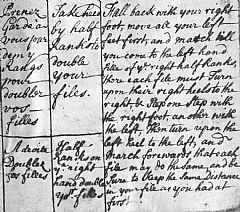 Prenez
garde a
vous par
demy
rangs
pour
doubler
vos
filles
Take heed
by half
ranks to
double
your
files.
Fall back with your right
foot move all your left
feet first, and march till
you come to the left hand
of ye right half ranks,
there each file must Turn
upon their right heels to the
right & Step one Step with
the right foot, another with
the left, then turn upon the
left heel to the left, and
A droite
Doublez
vos files
Half
Ranks on
ye right
hand double
yr files
march forwards, that each
file may do the Same, and be
Sure to keep the Same Distance
in your file as you had at
first